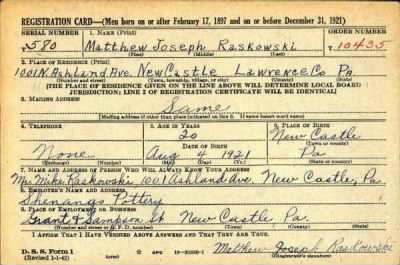 REGISTRATION CARD—(Men born on or after February 17, 1897 and on or before December 31, 1921)
SERIAL NUMBER 1. NAME (Print) ORDER NUMBER
T 580 Matthew Joseph Raskowski T 10435
(First) (Middle) (Last)
2. PLACE OF RESIDENCE (Print)
1001 N. Ashland Ave. New Castle Lawrence Co. Pa.
(Number and street) (Town, township, village, or city) (County) (State)
[THE PLACE OF RESIDENCE GIVEN ON THE LINE ABOVE WILL DETERMINE LOCAL BOARD
JURISDICTION; LINE 2 OF REGISTRATION CERTIFICATE WILL BE IDENTICAL]
3. MAILING ADDRESS
Same
[Mailing address if other than place indicated on line 2. If same insert word same]
4. TELEPHONE 5. AGE IN YEARS 6. PLACE OF BIRTH
20 New Castle
DATE OF BIRTH (Town or county)
None Aug 4 1921 Pa
(Exchange) (Number) (Mo.) (Day) (Yr.) (State or country)
7. NAME AND ADDRESS OF PERSON WHO WILL ALWAYS KNOW YOUR ADDRESS
Mrs Mike Raskowski 1001 Ashland Ave. New Castle, Pa.
8. EMPLOYER'S NAME AND ADDRESS
Shenango Pottery
9. PLACE OF EMPLOYMENT OR BUSINESS
Grant & Sampson St New Castle Pa.
(Number and street or R. F. D. number) (Town) (County) (State)
I AFFIRM THAT I HAVE VERIFIED ABOVE ANSWERS AND THAT THEY ARE TRUE.
D. S. S. Form 1
(Revised 1-1-42) (over) Matthew Joseph Raskowski
(Registrant's signature)